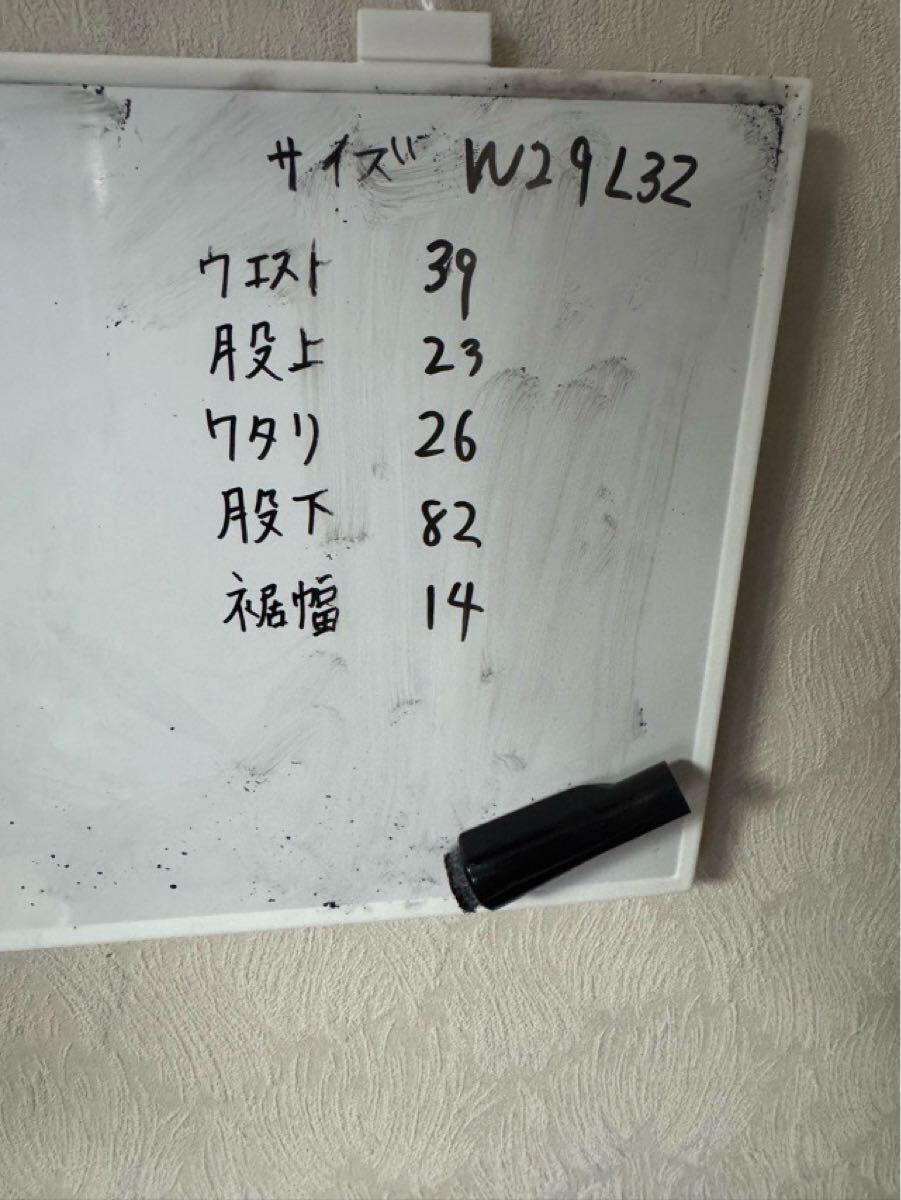 サイズ W29 L32
ウエスト 39
股上 23
ワタリ 26
股下 82
裾幅 14